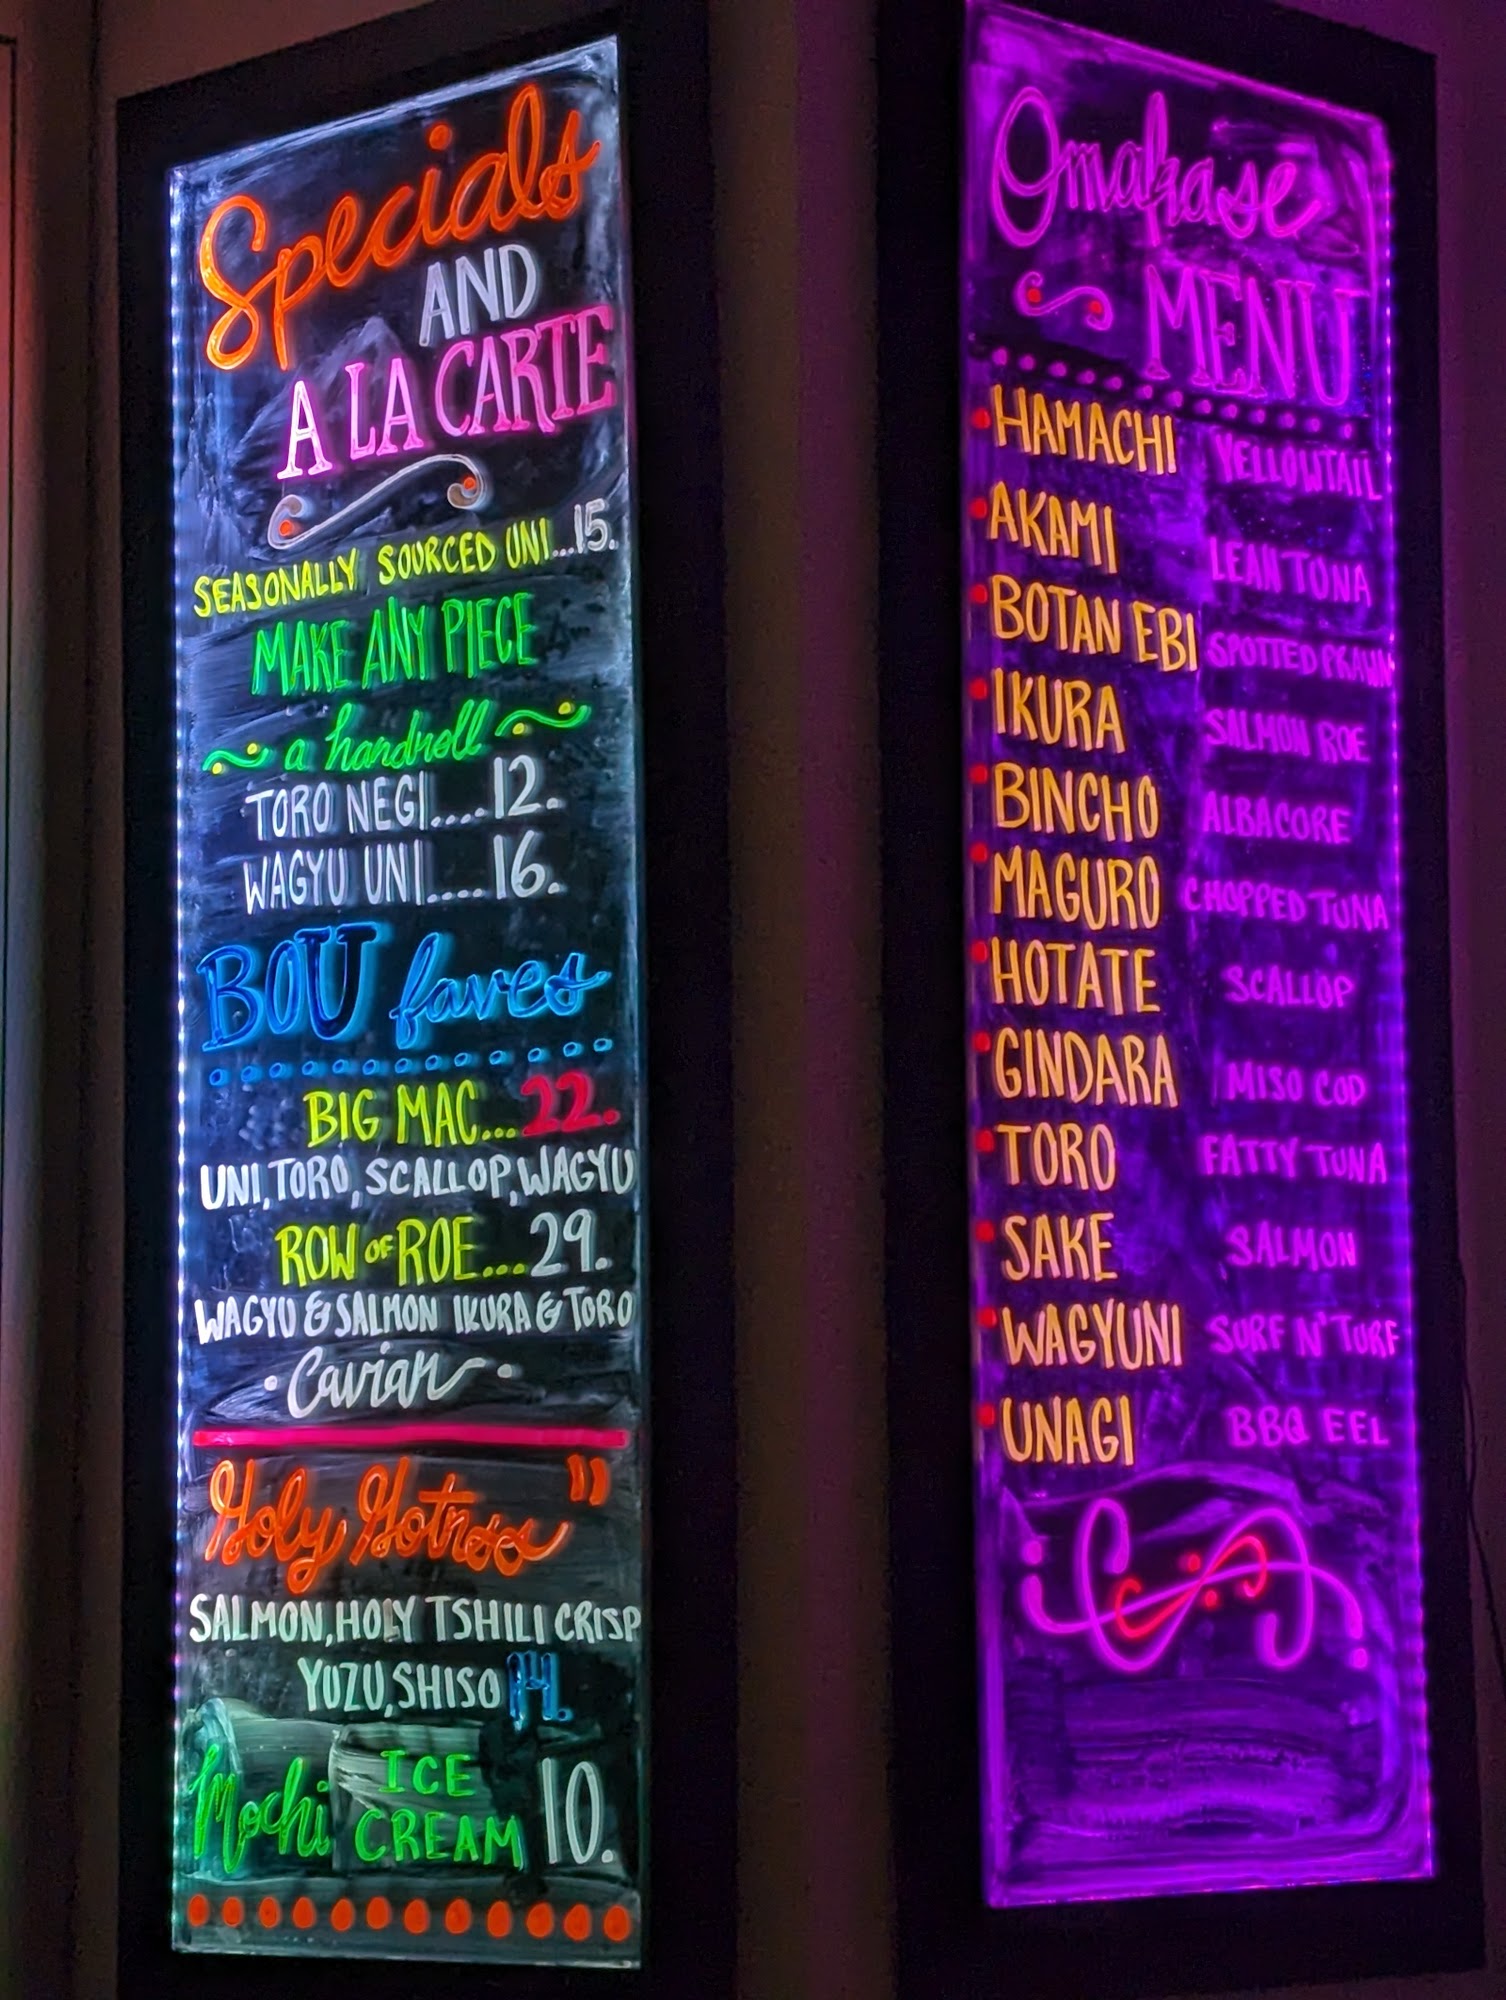 Specials
AND
A LA CARTE
SEASONALLY SOURCED UNI...15.
MAKE ANY PIECE
a handroll
TORO NEGI....12.
WAGYU UNI....16.
BOU faves
BIG MAC...22.
UNI, TORO, SCALLOP, WAGYU
ROW OF ROE...29.
WAGYU & SALMON IKURA & TORO
Caviar
"Holy Hotness"
SALMON, HOLY TSHILI CRISP
YUZU, SHISO 14.
Mochi ICE CREAM 10.
Omakase
MENU
HAMACHI YELLOWTAIL
AKAMI LEAN TUNA
BOTAN EBI SPOTTED PRAWN
IKURA SALMON ROE
BINCHO ALBACORE
MAGURO CHOPPED TUNA
HOTATE SCALLOP
GINDARA MISO COD
TORO FATTY TUNA
SAKE SALMON
WAGYUNI SURF N' TURF
UNAGI BBQ EEL